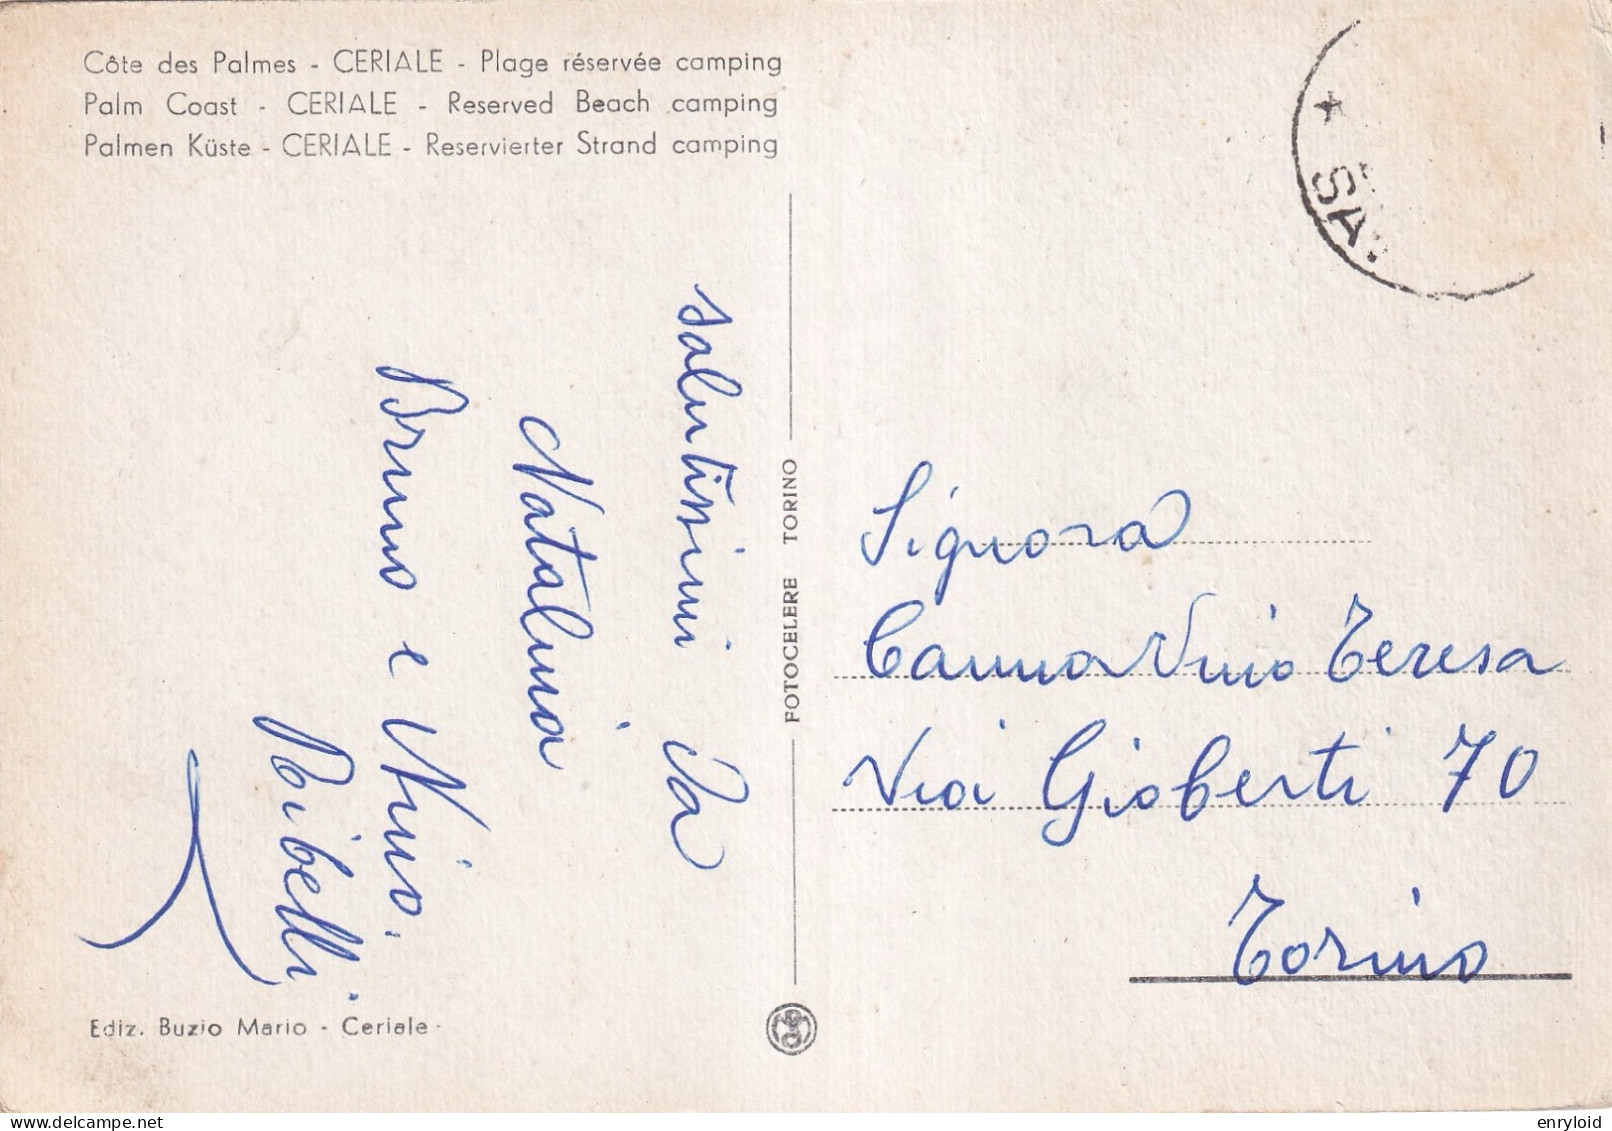 Côte des Palmes - CERIALE - Plage réservée camping
Palm Coast - CERIALE - Reserved Beach camping
Palmen Küste - CERIALE - Reservierter Strand camping
salutissimi da
Natalina
Bruno e Nino.
Ribelli
FOTOCELERE TORINO
SA
Signora
Teresa
Via Gioberti 70
Torino
Ediz. Buzio Mario - Ceriale
enryloid